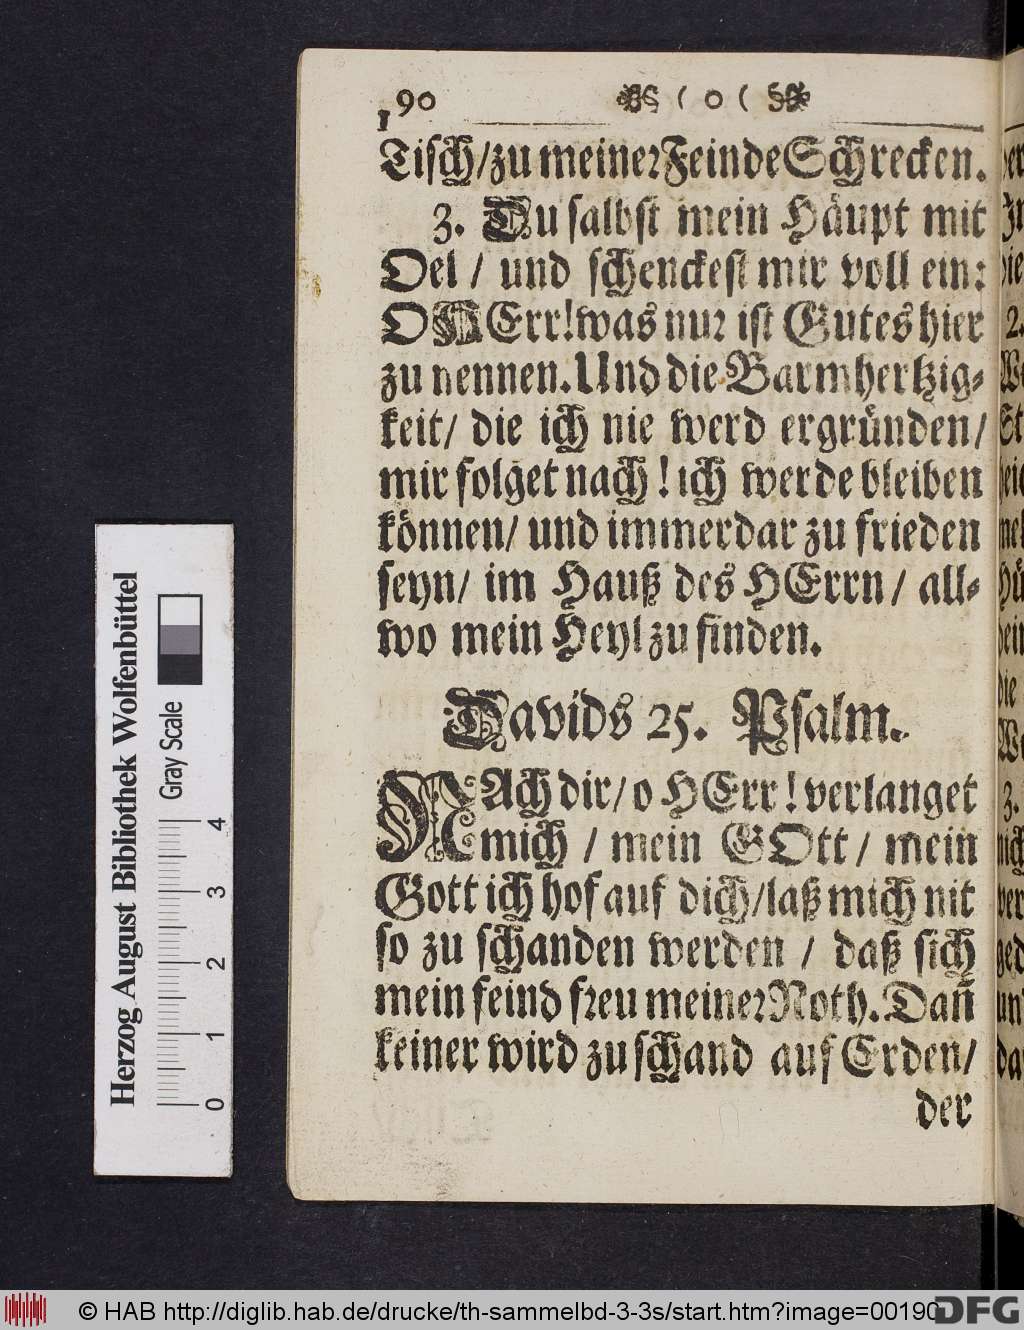 190 ( o (
Tisch/zu meiner Feinde Schrecken.
3. Du salbst mein Häupt mit
Oel / und schenckest mir voll ein:
O HErr! was nur ist Gutes hier
zu nennen. Und die Barmhertzig-
keit/ die ich nie werd ergründen/
mir folget nach! ich werde bleiben
können/ und immerdar zu frieden
seyn/ im Hauß des HErrn / all-
wo mein Heyl zu finden.
Davids 25. Psalm.
NAch dir/ o HErr! verlanget
mich / mein GOtt / mein
Gott ich hof auf dich/laß mich nit
so zu schanden werden / daß sich
mein feind freu meiner Noth. Dañ
keiner wird zu schand auf Erden/
der
Herzog August Bibliothek Wolfenbüttel
Gray Scale
0 1 2 3 4
© HAB http://diglib.hab.de/drucke/th-sammelbd-3-3s/start.htm?image=00190
DFG